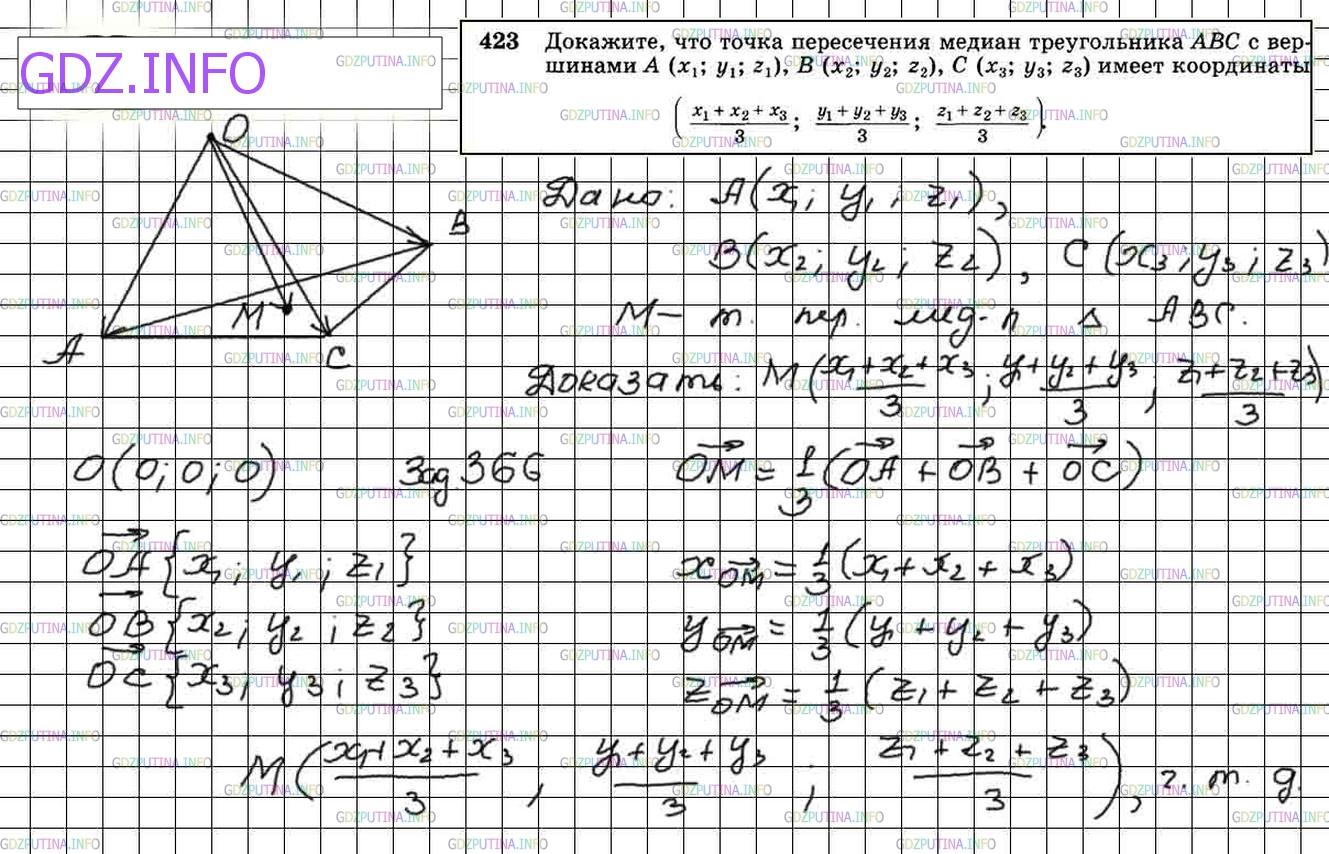 GDZ.INFO
423 Докажите, что точка пересечения медиан треугольника ABC с вер-
шинами A (x₁; y₁; z₁), B (x₂; y₂; z₂), C (x₃; y₃; z₃) имеет координаты
( (x₁ + x₂ + x₃)/3 ; (y₁ + y₂ + y₃)/3 ; (z₁ + z₂ + z₃)/3 ).
O
B
M
A
C
Дано: A(x₁; y₁; z₁),
B(x₂; y₂; z₂), C(x₃; y₃; z₃)
M – т. пер. мед-н Δ ABC.
Доказать: M((x₁+x₂+x₃)/3; (y₁+y₂+y₃)/3; (z₁+z₂+z₃)/3)
O(0; 0; 0) Зад. 366 OM⃗ = 1/3 (OA⃗ + OB⃗ + OC⃗)
OA⃗ {x₁; y₁; z₁} x OM⃗ = 1/3 (x₁ + x₂ + x₃)
OB⃗ {x₂; y₂; z₂} y OM⃗ = 1/3 (y₁ + y₂ + y₃)
OC⃗ {x₃; y₃; z₃} z OM⃗ = 1/3 (z₁ + z₂ + z₃)
M((x₁+x₂+x₃)/3; (y₁+y₂+y₃)/3; (z₁+z₂+z₃)/3), ч. т. д.
GDZPUTINA.INFO